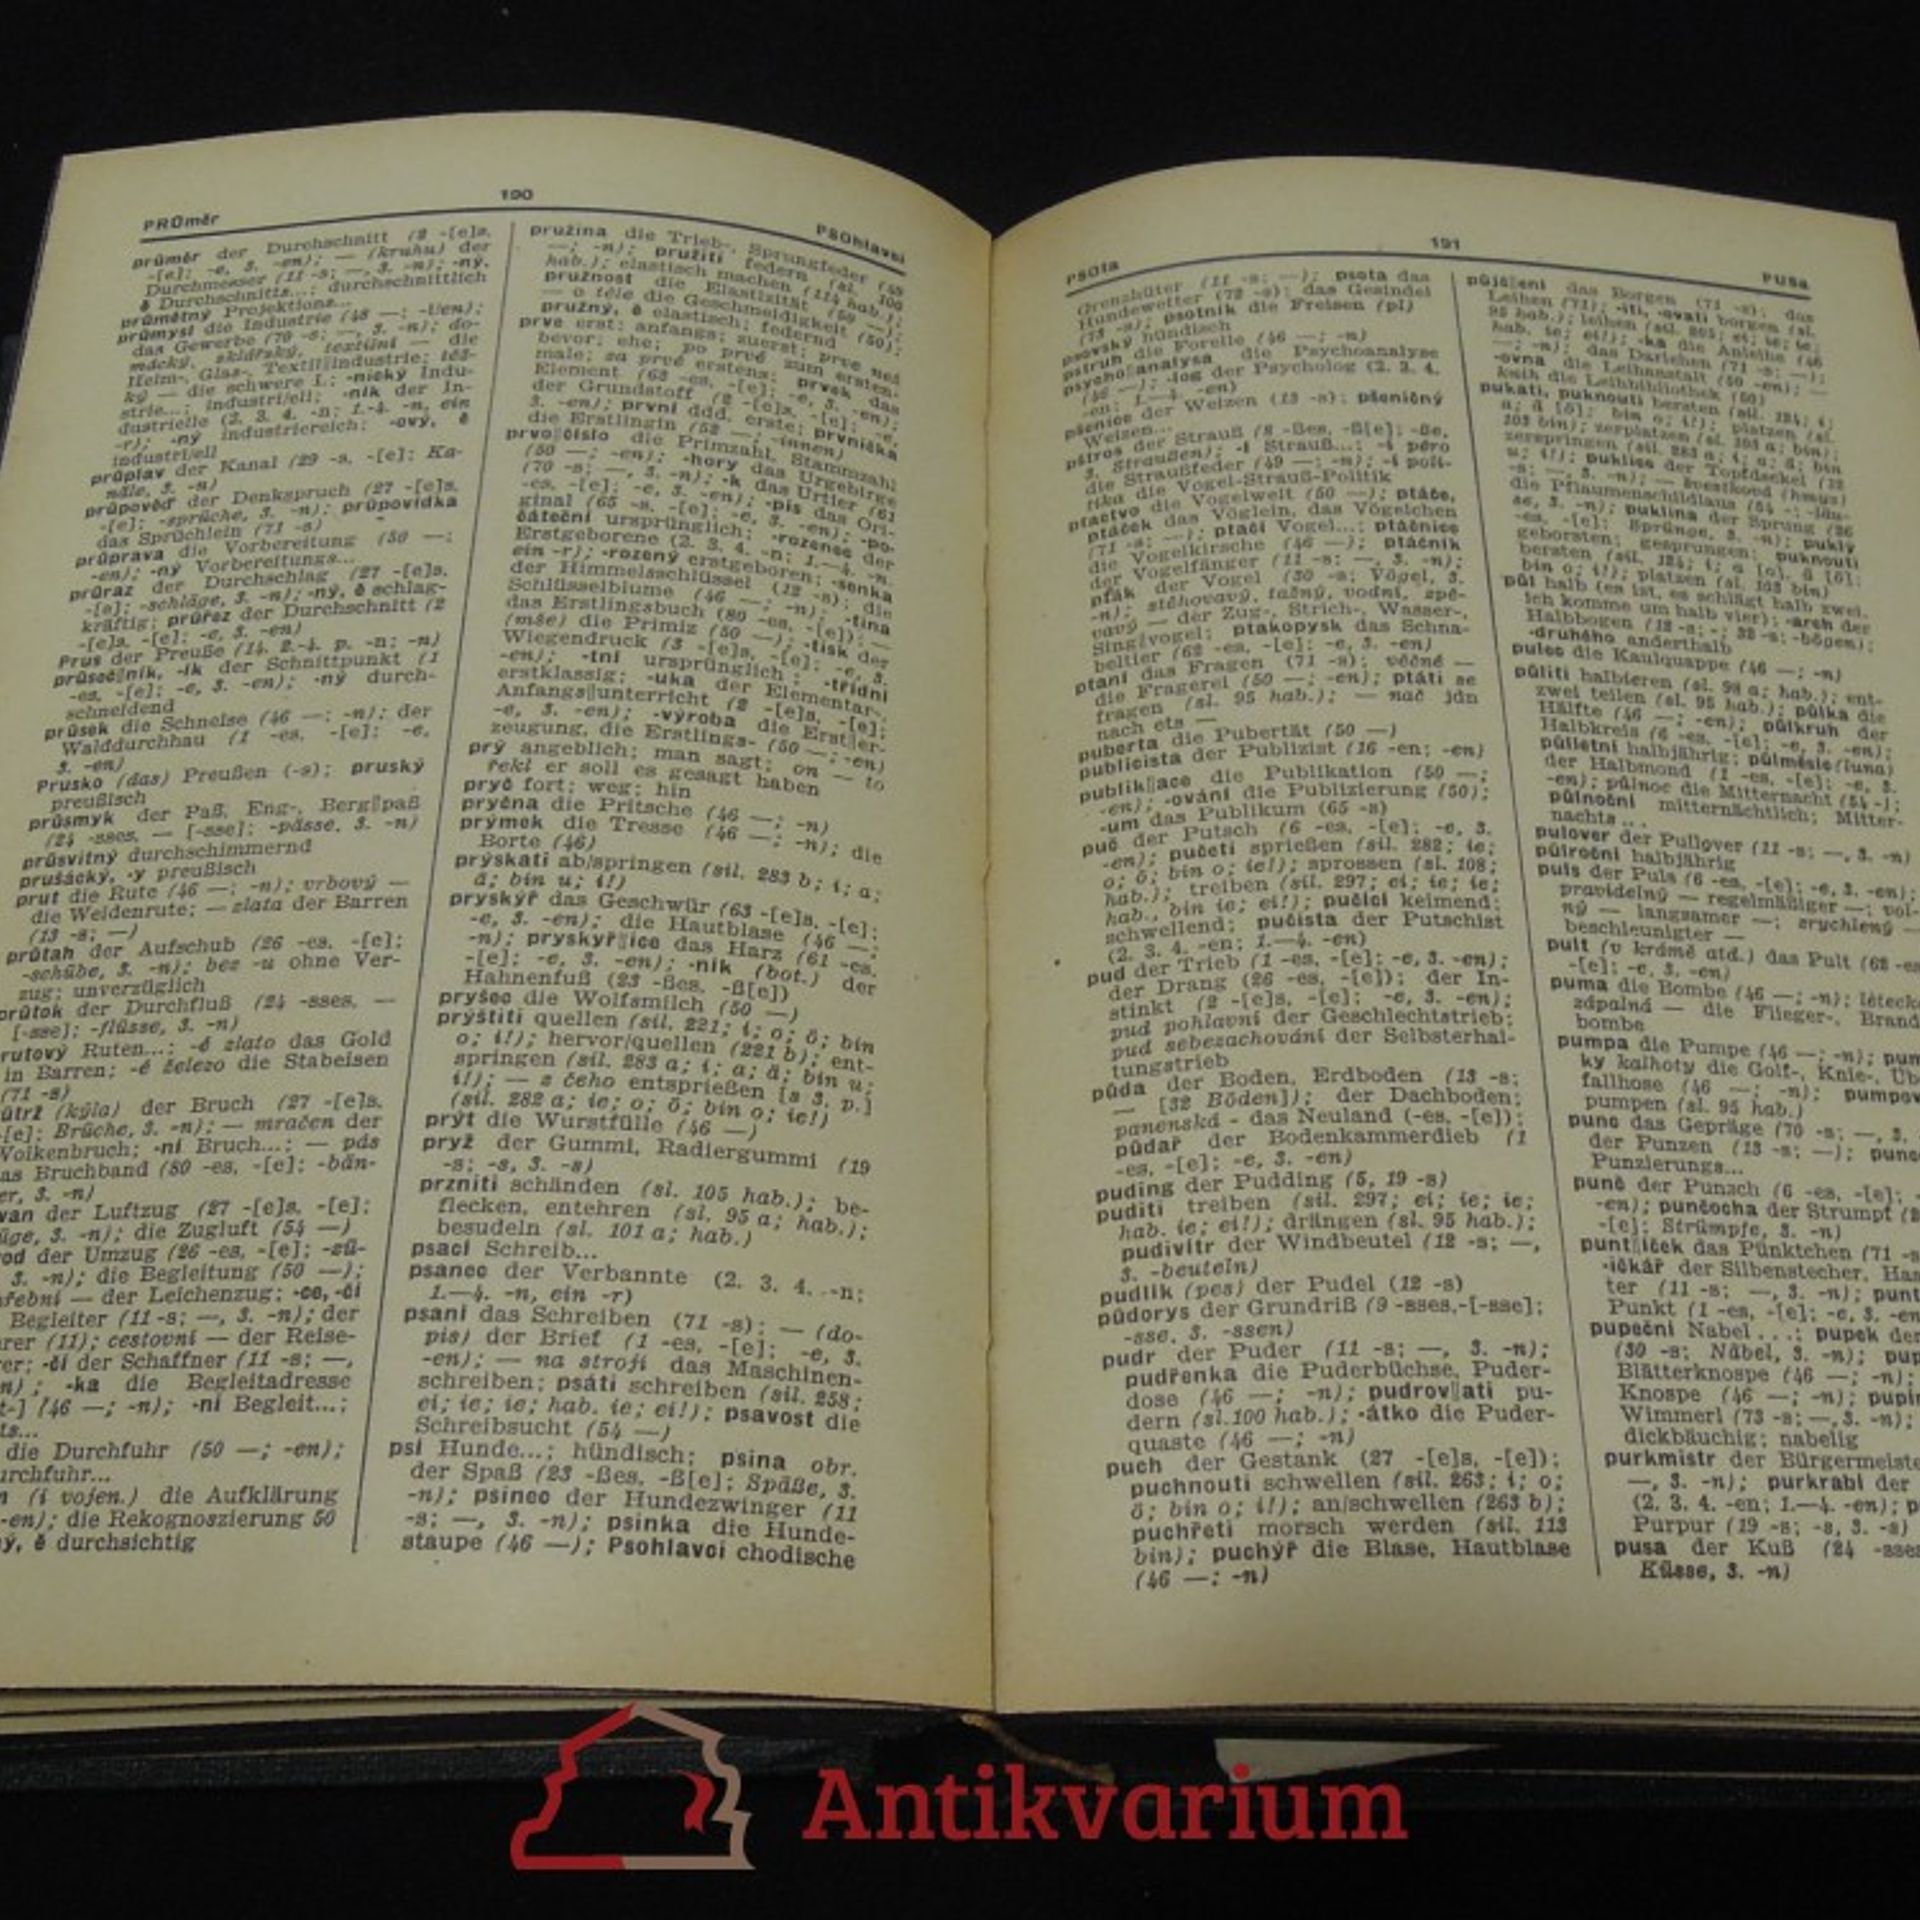 190
PRŮměr
PSOhlavci
průměr der Durchschnitt (2 -[e]s,
-[e]; -e, 3. -en); — (kruhu) der
Durchmesser (11 -s; —, 3. -n); -ný,
ě Durchschnitts...; durchschnittlich
průmětný Projektions...
průmysl die Industrie (48 —; -i/en);
das Gewerbe (70 -s; —, 3. -n); do-
mácký, sklářský, textilní — die
Heim-, Glas-, Textil‖industrie; těž-
ký — die schwere I.; -nický Indu-
strie...; industri/ell; -ník der In-
dustrielle (2. 3. 4. -n; 1.-4. -n, ein
-r); -ný industriereich; -ový, ě
industri/ell
průplav der Kanal (29 -s, -[e]; Ka-
näle, 3. -n)
průpověď der Denkspruch (27 -[e]s,
-[e]; -sprüche, 3. -n); průpovídka
das Sprüchlein (71 -s)
průprava die Vorbereitung (50 —;
-en); -ný Vorbereitungs...
průraz der Durchschlag (27 -[e]s,
-[e]; -schläge, 3. -n); -ný, ě schlag-
kräftig; průřez der Durchschnitt (2
-[e]s, -[e]; -e, 3. -en)
Prus der Preuße (14. 2.-4. p. -n; -n)
průsečník, -ík der Schnittpunkt (1
-es, -[e]; -e, 3. -en); -ný durch-
schneidend
průsek die Schneise (46 —; -n); der
Walddurchhau (1 -es, -[e]; -e,
3. -en)
Prusko (das) Preußen (-s); pruský
preußisch
průsmyk der Paß, Eng-, Berg‖paß
(24 -sses, — [-sse]; -pässe, 3. -n)
průsvitný durchschimmernd
prušácký, -y preußisch
prut die Rute (46 —; -n); vrbový —
die Weidenrute; — zlata der Barren
(13 -s; —)
průtah der Aufschub (26 -es, -[e];
-schübe, 3. -n); bez -u ohne Ver-
zug; unverzüglich
průtok der Durchfluß (24 -sses, —
[-sse]; -flüsse, 3. -n)
rutový Ruten...; -é zlato das Gold
in Barren; -é železo die Stabeisen
(71 -s)
(kýla) der Bruch (27 -[e]s,
[e]; Brüche, 3. -n); — mračen der
Wolkenbruch; -ní Bruch...; — pás
as Bruchband (80 -es, -[e]; -bän-
er, 3. -n)
van der Luftzug (27 -[e]s, -[e];
üge, 3. -n); die Zugluft (54 —)
od der Umzug (26 -es, -[e]; -zü-
3. -n); die Begleitung (50 —);
řební — der Leichenzug; -ce, -čí
Begleiter (11 -s; —, 3. -n); der
rer (11); cestovní — der Reise-
er; -čí der Schaffner (11 -s; —,
n); -ka die Begleitadresse
t-] (46 —; -n); -ní Begleit...;
ts...
die Durchfuhr (50 —; -en);
urchfuhr...
(i vojen.) die Aufklärung
-en); die Rekognoszierung 50
ý, ě durchsichtig
pružina die Trieb-, Sprungfeder (46
—; -n); pružiti federn (sl. 108
hab.); elastisch machen (114 hab.);
pružnost die Elastizität (50 —);
— o těle die Geschmeidigkeit (50);
pružný, ě elastisch; federnd
prve erst; anfangs; zuerst; prve než
bevor; ehe; po prvé zum ersten-
male; za prvé erstens; prvek das
Element (63 -es, -[e]; -e, 3. -en);
der Grundstoff (2 -[e]s, -[e]; -e,
3. -en); první ddd. erste; prvnička
die Erstlingin (52 —; -innen)
prvo‖číslo die Primzahl, Stammzahl
(50 —; -en); -hory das Urgebirge
(70 -s; —, 3. -n); -k das Urtier (61
-es, -[e]; -e, 3. -en); -pis das Ori-
ginal (65 -s, -[e]; -e, 3. -en); -po-
čáteční ursprünglich; -rozenec der
Erstgeborene (2. 3. 4. -n; 1.—4. -n,
ein -r); -rozený erstgeboren; -senka
der Himmelsschlüssel (12 -s); die
Schlüsselblume (46 —; -n); -tina
das Erstlingsbuch (80 -es, -[e]); —
(mše) die Primiz (50 —); -tisk der
Wiegendruck (3 -[e]s, -[e]; -e, 3.
-en); -tní ursprünglich; -třídní
erstklassig; -uka der Elementar-,
Anfangs‖unterricht (2 -[e]s, -[e];
-e, 3. -en); -výroba die Erst‖er-
zeugung, die Erstlings- (50 —; -en)
prý angeblich; man sagt; on — to
řekl er soll es gesagt haben
pryč fort; weg; hin
pryčna die Pritsche (46 —; -n)
prýmek die Tresse (46 —; -n); die
Borte (46)
prýskati ab/springen (sil. 283 b; i; a;
ä; bin u; i!)
pryskýř das Geschwür (63 -[e]s, -[e];
-e, 3. -en); die Hautblase (46 —;
-n); pryskyř‖ice das Harz (61 -es,
-[e]; -e, 3. -en); -ník (bot.) der
Hahnenfuß (23 -ßes, -ß[e])
pryšec die Wolfsmilch (50 —)
prýštiti quellen (sil. 221; i; o; ö; bin
o; i!); hervor/quellen (221 b); ent-
springen (sil. 283 a; i; a; ä; bin u;
i!); — z čeho entsprießen [s 3. p.]
(sil. 282 a; ie; o; ö; bin o; ie!)
prýt die Wurstfülle (46 —)
pryž der Gummi, Radiergummi (19
-s; -s, 3. -s)
przniti schänden (sl. 105 hab.); be-
flecken, entehren (sl. 95 a; hab.);
besudeln (sl. 101 a; hab.)
psací Schreib...
psanec der Verbannte (2. 3. 4. -n;
1.—4. -n, ein -r)
psaní das Schreiben (71 -s); — (do-
pis) der Brief (1 -es, -[e]; -e, 3.
-en); — na stroji das Maschinen-
schreiben; psáti schreiben (sil. 258;
ei; ie; ie; hab. ie; ei!); psavost die
Schreibsucht (54 —)
psí Hunde...; hündisch; psina obr.
der Spaß (23 -ßes, -ß[e]; Späße, 3.
-n); psinec der Hundezwinger (11
-s; —, 3. -n); psinka die Hunde-
staupe (46 —); Psohlavci chodische
191
PSOta
PUSa
Grenzhüter (11 -s; —); psota das
Hundewetter (72 -s); das Gesindel
(73 -s); psotník die Freisen (pl)
psovský hündisch
pstruh die Forelle (46 —; -n)
psycho‖analysa die Psychoanalyse
(46 —); -log der Psycholog (2. 3. 4.
-en; 1.—4. -en)
pšenice der Weizen (13 -s); pšeničný
Weizen...
pštros der Strauß (8 -ßes, -ß[e]; -ße,
3. Straußen); -í Strauß...; -í péro
die Straußfeder (49 —; -n); -í poli-
tika die Vogel-Strauß-Politik
ptactvo die Vogelwelt (50 —); ptáče,
ptáček das Vöglein, das Vögelchen
(71 -s; —); ptačí Vogel...; ptáčnice
die Vogelkirsche (46 —); ptáčník
der Vogelfänger (11 -s; —, 3. -n);
pták der Vogel (30 -s; Vögel, 3.
-n); stěhovavý, tažný, vodní, zpě-
vavý — der Zug-, Strich-, Wasser-,
Sing‖vogel; ptakopysk das Schna-
beltier (62 -es, -[e]; -e, 3. -en)
ptaní das Fragen (71 -s); věčné —
die Fragerei (50 —; -en); ptáti se
fragen (sl. 95 hab.); — nač jdn
nach ets —
puberta die Pubertät (50 —)
publicista der Publizist (16 -en; -en)
publik‖ace die Publikation (50 —;
-en); -ování die Publizierung (50);
-um das Publikum (65 -s)
puč der Putsch (6 -es, -[e]; -e, 3.
-en); pučeti sprießen (sil. 282; ie;
o; ö; bin o; ie!); sprossen (sl. 108;
hab.); treiben (sil. 297; ei; ie; ie;
hab., bin ie; ei!); pučící keimend;
schwellend; pučista der Putschist
(2. 3. 4. -en; 1.—4. -en)
pud der Trieb (1 -es, -[e]; -e, 3. -en);
der Drang (26 -es, -[e]); der In-
stinkt (2 -[e]s, -[e]; -e, 3. -en);
pud pohlavní der Geschlechtstrieb;
pud sebezachování der Selbsterhal-
tungstrieb
půda der Boden, Erdboden (13 -s;
— [32 Böden]); der Dachboden;
panenská - das Neuland (-es, -[e]);
půdař der Bodenkammerdieb (1
-es, -[e]; -e, 3. -en)
puding der Pudding (5, 19 -s)
puditi treiben (sil. 297; ei; ie; ie;
hab. ie; ei!); drängen (sl. 95 hab.);
pudivítr der Windbeutel (12 -s; —,
3. -beuteln)
pudlík (pes) der Pudel (12 -s)
půdorys der Grundriß (9 -sses,-[-sse];
-sse, 3. -ssen)
pudr der Puder (11 -s; —, 3. -n);
pudřenka die Puderbüchse, Puder-
dose (46 —; -n); pudrov‖ati pu-
dern (sl.100 hab.); -átko die Puder-
quaste (46 —; -n)
puch der Gestank (27 -[e]s, -[e]);
puchnouti schwellen (sil. 263; i; o;
ö; bin o; i!); an/schwellen (263 b);
puchřeti morsch werden (sil. 113
bin); puchýř die Blase, Hautblase
(46 —; -n)
půjč‖ení das Borgen (71 -s); das
Leihen (71); -iti, -ovati borgen (sl.
95 hab.); leihen (sil. 205; ei; ie; ie;
hab. ie; ei!); -ka die Anleihe (46
—; -n); das Darlehen (71 -s; —);
-ovna die Leihanstalt (50 -en); —
knih die Leihbibliothek (50)
pukati, puknouti bersten (sil. 124; i;
a; ä [ö]; bin o; i!); platzen (sl.
103 bin); zerplatzen (sl. 103 a; bin);
zerspringen (sil. 283 a; i; a; ä; bin
u; i!); puklice der Topfdeckel (12
-s; —, 3. -n); — švestková (hmyz)
die Pflaumenschildlaus (54 -; -läu-
se, 3. -n); puklina der Sprung (26
-es, -[e]; Sprünge, 3. -n); puklý
geborsten; gesprungen; puknouti
bersten (sil. 124; i; a [o], ä [ö];
bin o; i!); platzen (sl. 103 bin)
půl halb (es ist, es schlägt halb zwei,
ich komme um halb vier); -arch der
Halbbogen (13 -s; -; 32 -s; -bögen);
-druhého anderthalb
pulec die Kaulquappe (46 —; -n)
půliti halbieren (sl. 98 a; hab.); ent-
zwei teilen (sl. 95 hab.); půlka die
Hälfte (46 —; -en); půlkruh der
Halbkreis (6 -es, -[e]; -e, 3. -en);
půlletní halbjährig; půlměsíc (luna)
der Halbmond (1 -es, -[e]; -e, 3.
-en); půlnoc die Mitternacht (54 -);
půlnoční mitternächtlich; Mitter-
nachts...
pulover der Pullover (11 -s; —, 3. -n)
půlroční halbjährig
puls der Puls (6 -es, -[e]; -e, 3. -en);
pravidelný — regelmäßiger —; vol-
ný — langsamer —; zrychlený —
beschleunigter —
pult (v krámě atd.) das Pult (62 -es
-[e]; -e, 3. -en)
puma die Bombe (46 —; -n); leteck
zápalná — die Flieger-, Brand
bombe
pumpa die Pumpe (46 —; -n); pum
ky kalhoty die Golf-, Knie-, Üb
fallhose (46 —; -n); pumpov
pumpen (sl. 95 hab.)
punc das Gepräge (70 -s; —, 3.
der Punzen (13 -s; —); punc
Punzierungs...
punč der Punsch (6 -es, -[e]; -
-en); punčocha der Strumpf (2
-[e]; Strümpfe, 3. -n)
punt‖íček das Pünktchen (71 -s
-ičkář der Silbenstecher, Has
ter (11 -s; —, 3. -n); punt
Punkt (1 -es, -[e]; -e, 3. -en
pupeční Nabel ...; pupek der
(30 -s; Näbel, 3. -n); pup
Blätterknospe (46 —; -n);
Knospe (46 —; -n); pupín
Wimmerl (73 -s; —, 3. -n);
dickbäuchig; nabelig
purkmistr der Bürgermeiste
—, 3. -n); purkrabí der
(2. 3. 4. -en; 1.—4. -en); p
Purpur (19 -s; -s, 3. -s)
pusa der Kuß (24 -sses
Küsse, 3. -n)
Antikvarium